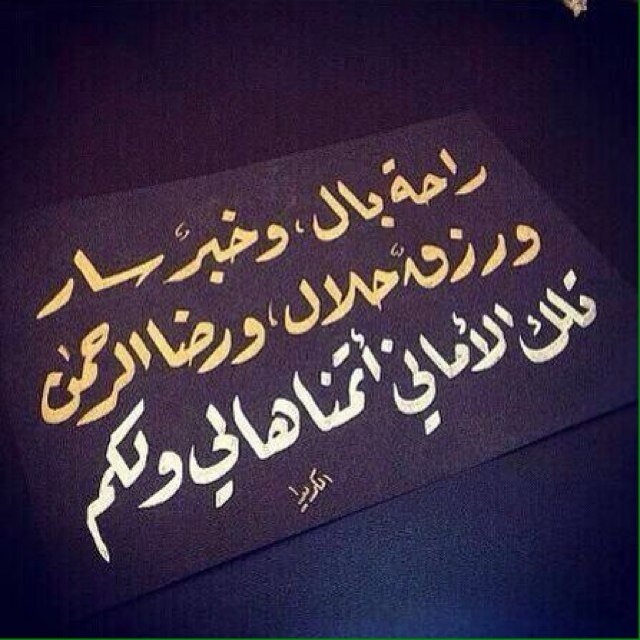 راحة بال، وخبرٌ سار
ورزقٌ حلال، ورضا الرحمٰن
تلك الأماني أتمناها لي ولكم